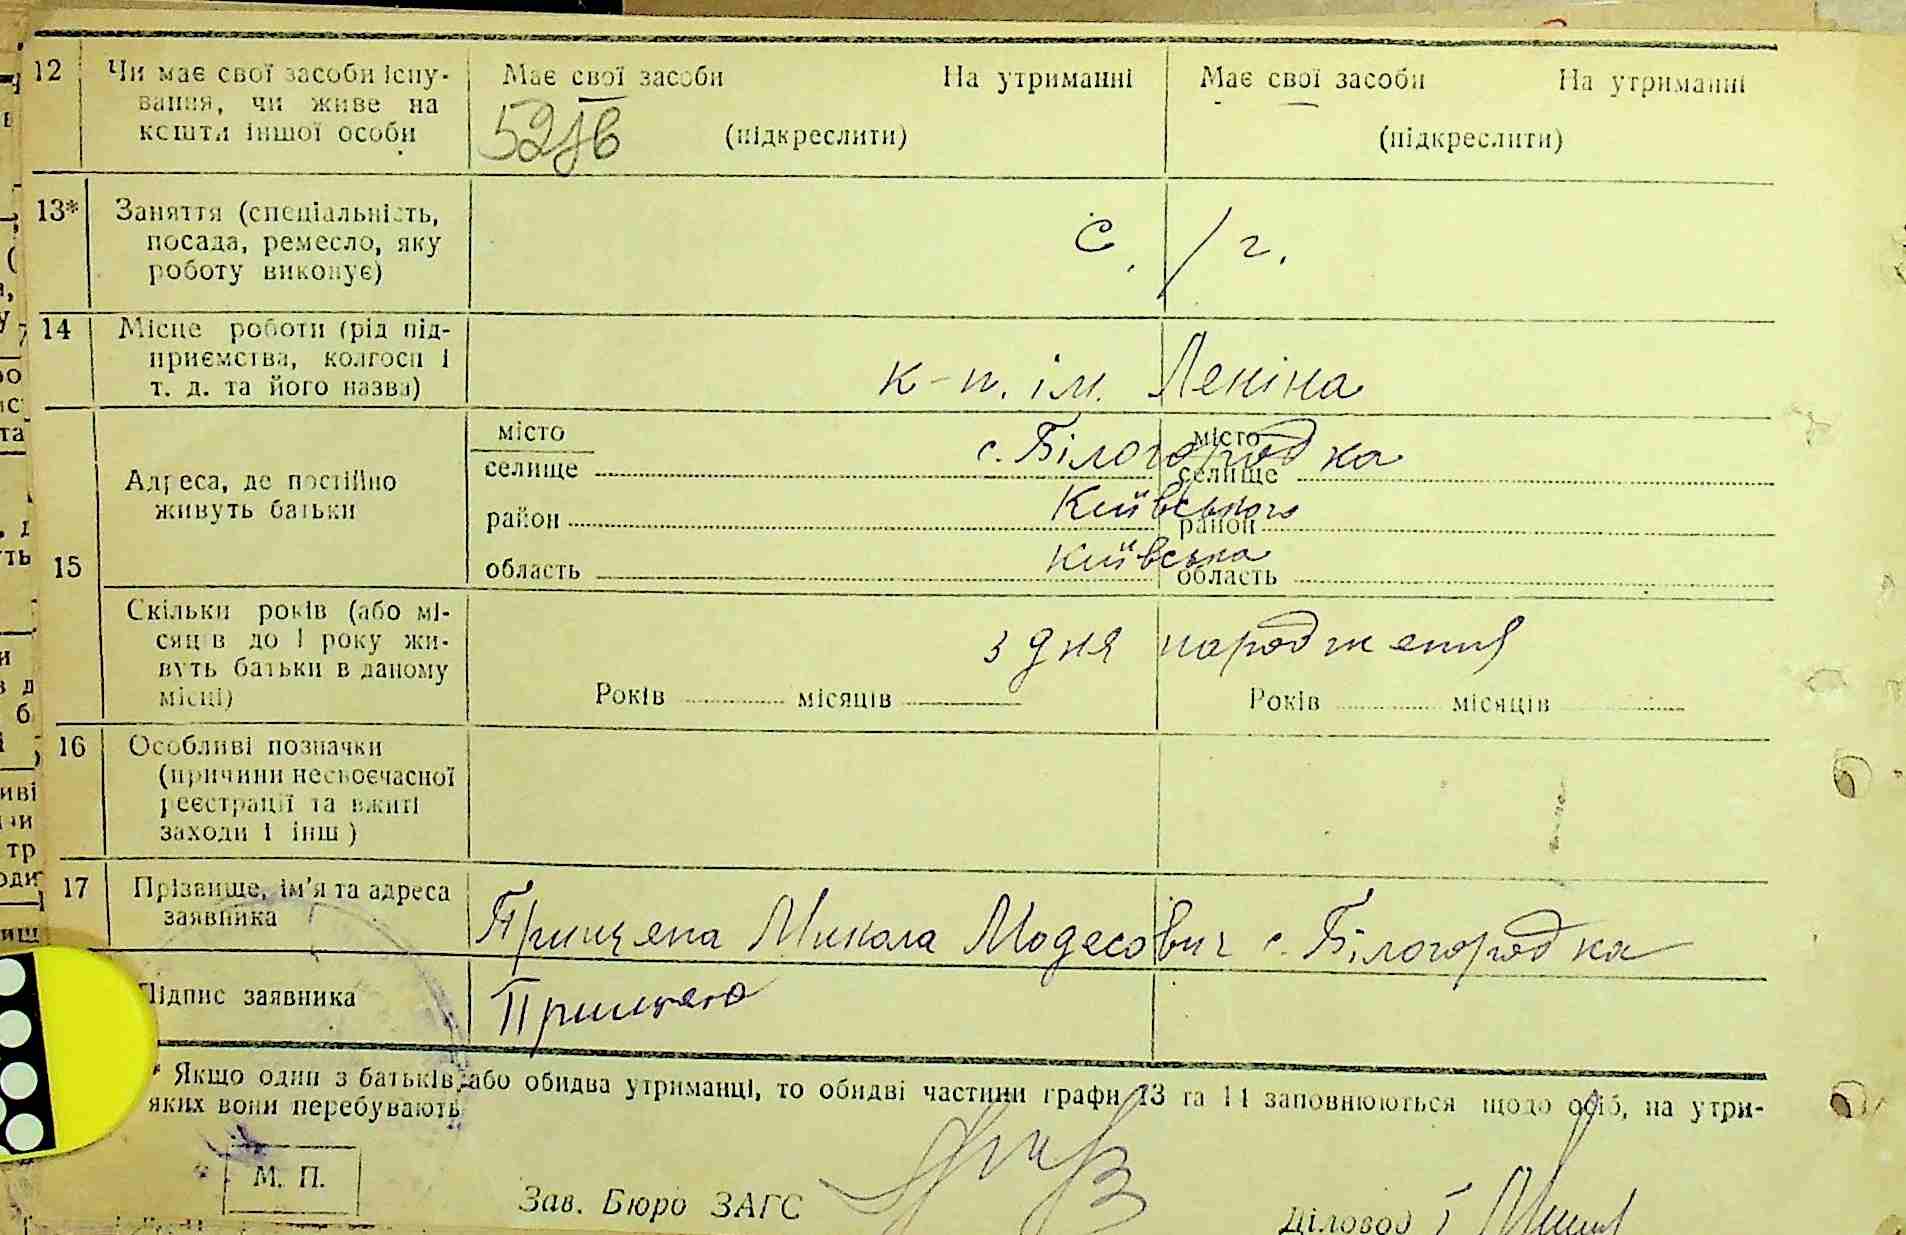 12 Чи має свої засоби існу- Має свої засоби На утриманні Має свої засоби На утриманні
вання, чи живе на
кошти іншої особи (підкреслити) (підкреслити)
13* Заняття (спеціальність,
посада, ремесло, яку с./г.
роботу виконує)
14 Місце роботи (рід під-
приємства, колгосп і к-п. ім. Леніна
т. д. та його назва)
місто с. Білогородка місто
селище селище
Адреса, де постійно
живуть батьки
район Київського район
15
область Київська область
Скільки років (або мі-
сяців до 1 року жи- з дня народження
вуть батьки в даному
місці) Років місяців Років місяців
16 Особливі позначки
(причини несвоєчасної
реєстрації та вжиті
заходи і інш)
17 Прізвище, ім'я та адреса
заявника Прищепа Микола Модесович с. Білогородка
Підпис заявника
* Якщо один з батьків або обидва утриманці, то обидві частини графи 13 та 14 заповнюються щодо осіб, на утри-
яких вони перебувають
М. П.
Зав. Бюро ЗАГС
Діловод